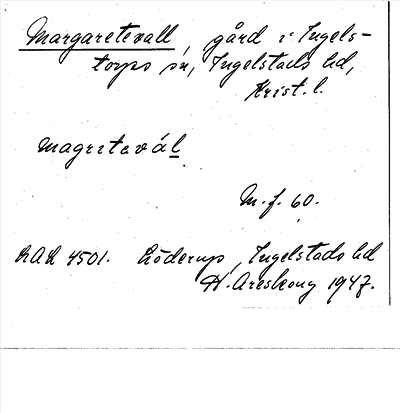 Margaretevall, gård i Ingels-
torps sn, Ingelstads hd,
Krist. l.
magrıtevál
M. f. 60.
LAL 4501. Löderup, Ingelstads hd
H. Areskoug 1947.